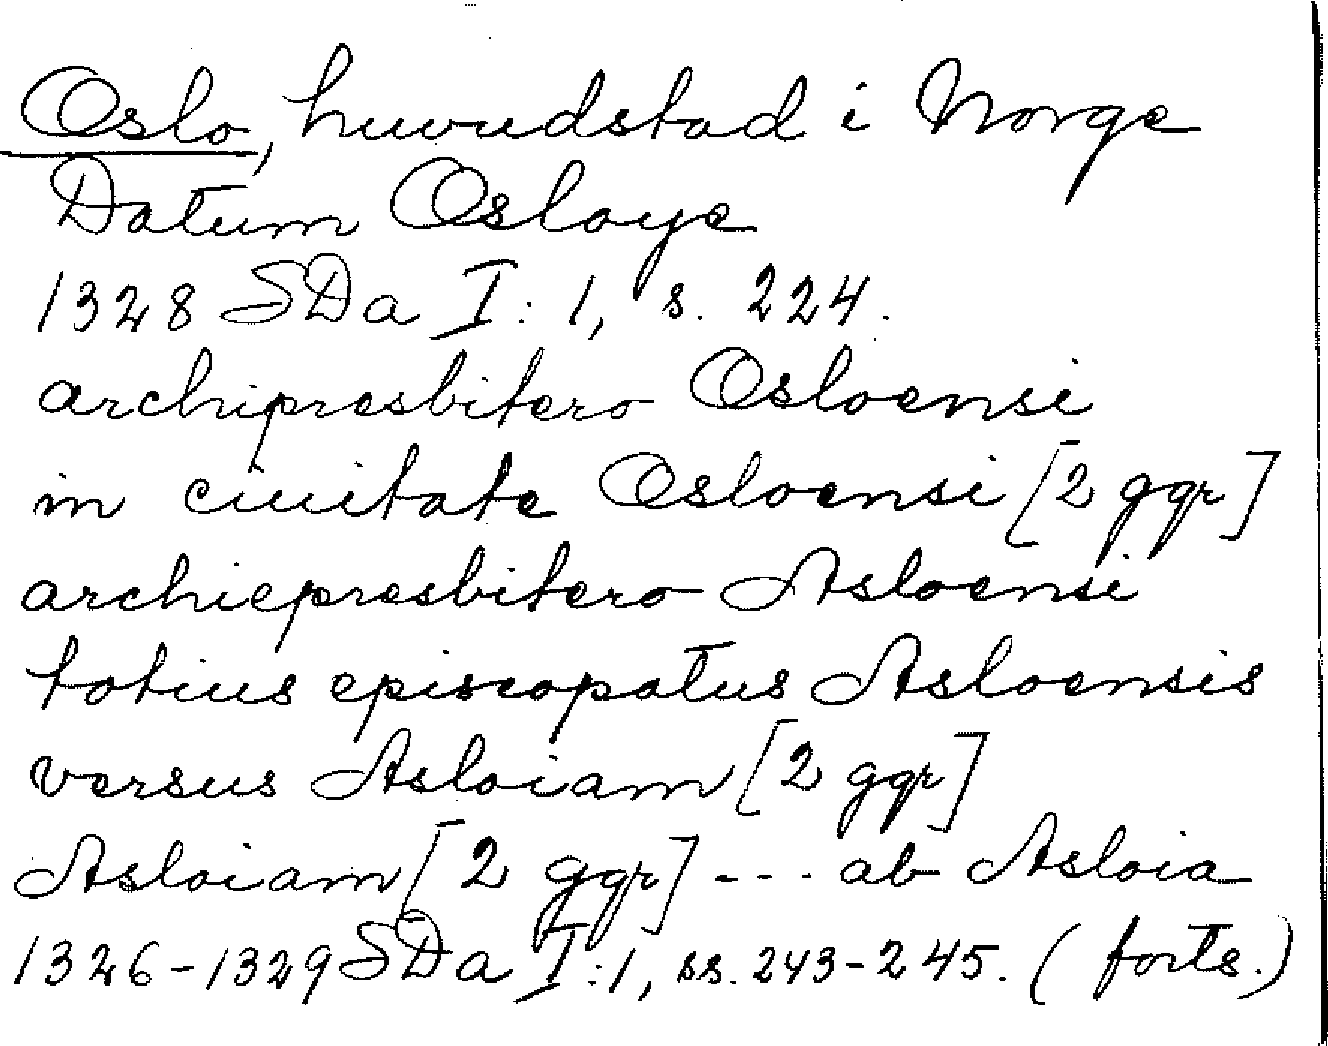 Oslo, huvudstad i Norge
Datum Osloye
1328 SDa I:1, s. 224.
archipresbitero Osloensi
in ciuitate Osloensi [2 ggr]
archiepresbitero Asloensi
totius episcopatus Asloensis
versus Asloiam [2 ggr]
Asloiam [2 ggr] --- ab Asloia
1326-1329 SDa I:1, ss. 243-245. (forts.)